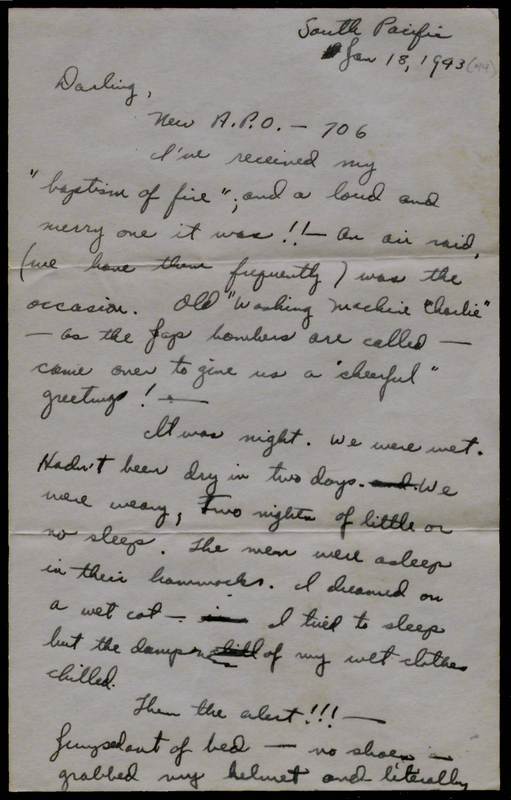 South Pacific
Jan 18, 1943 (44)
Darling,
New A.P.O. — 706
I've received my
"baptism of fire"; and a loud and
merry one it was!! — An air raid,
(we have them frequently) was the
occasion. Old "Washing Machine Charlie"
— as the Jap bombers are called —
came over to give us a "cheerful"
greetings! —
It was night. We were wet.
Hadn't been dry in two days. and We
were weary, Two nights of little or
no sleep. The men were asleep
in their hammocks. I dreamed on
a wet cot — I tried to sleep
but the dampness of my wet clothes
chilled.
Then the alert!!! —
Jumped out of bed — no shoes —
grabbed my helmet and literally